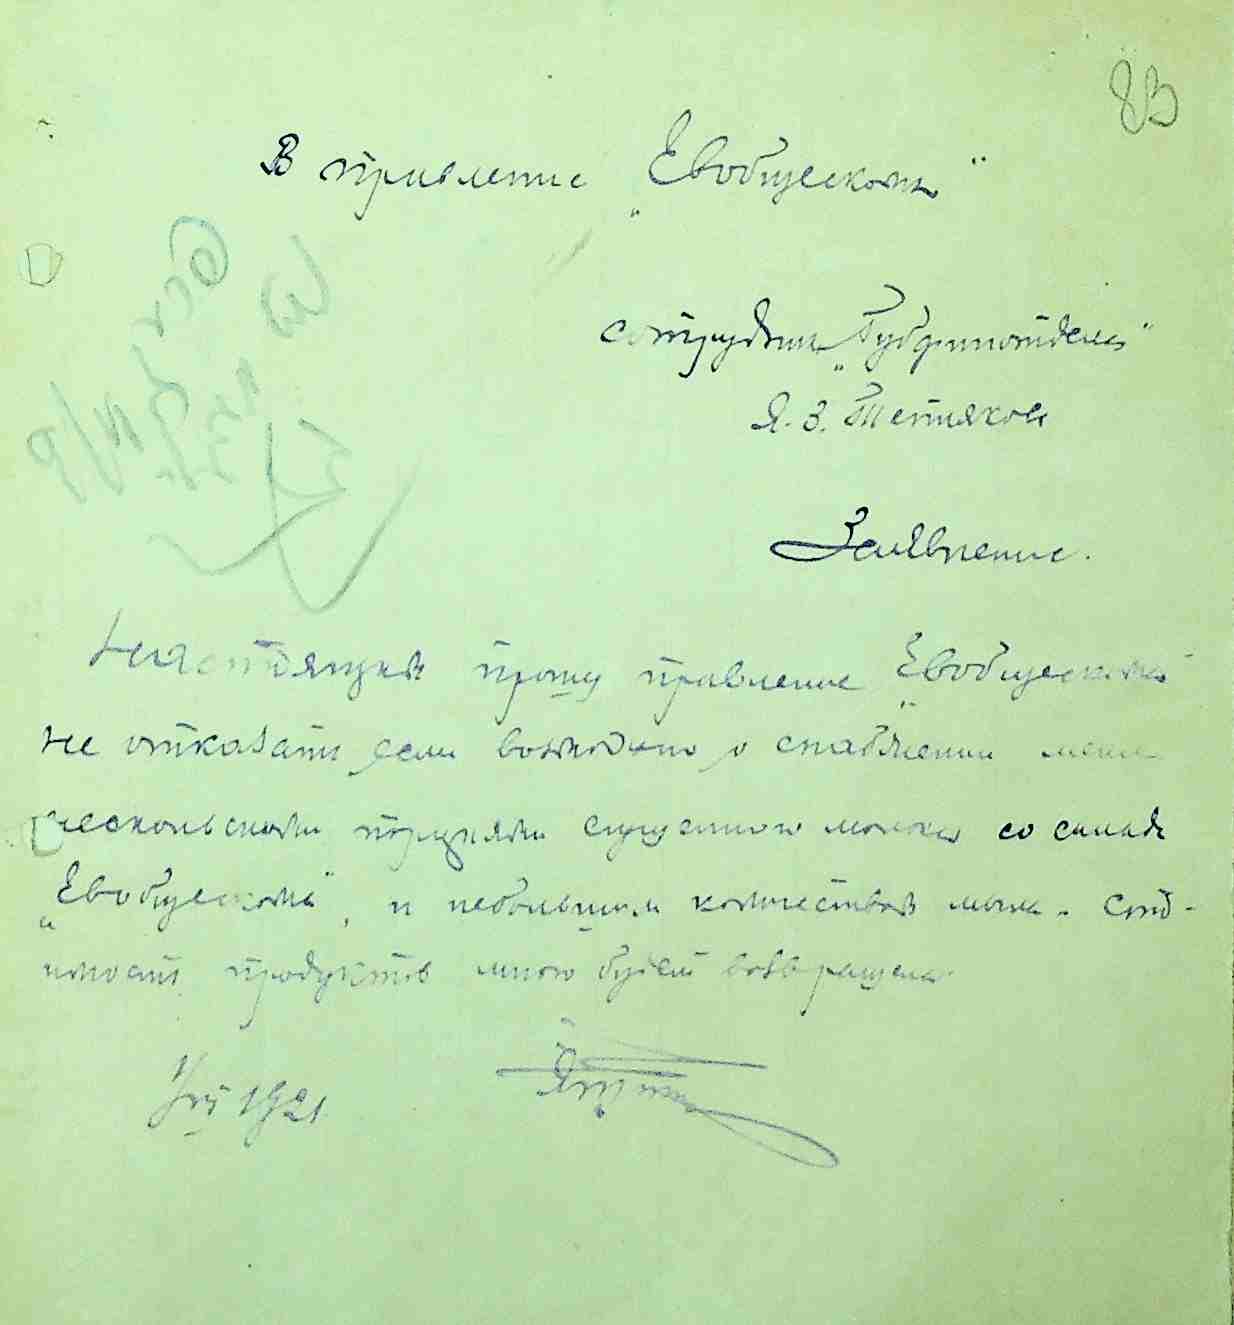 83
В правление „Евобщескома"
сотрудника „Губфинотдела"
Я. З.
Заявление.
Настоящим прошу правление „Евобщескома"
не отказать если возможно о снабжении меня
несколькими порциями сгущенного молока со склада
„Евобщескома", и небольшим количеством мыла. Сто-
имость продуктов мною будет возвращена.
1921